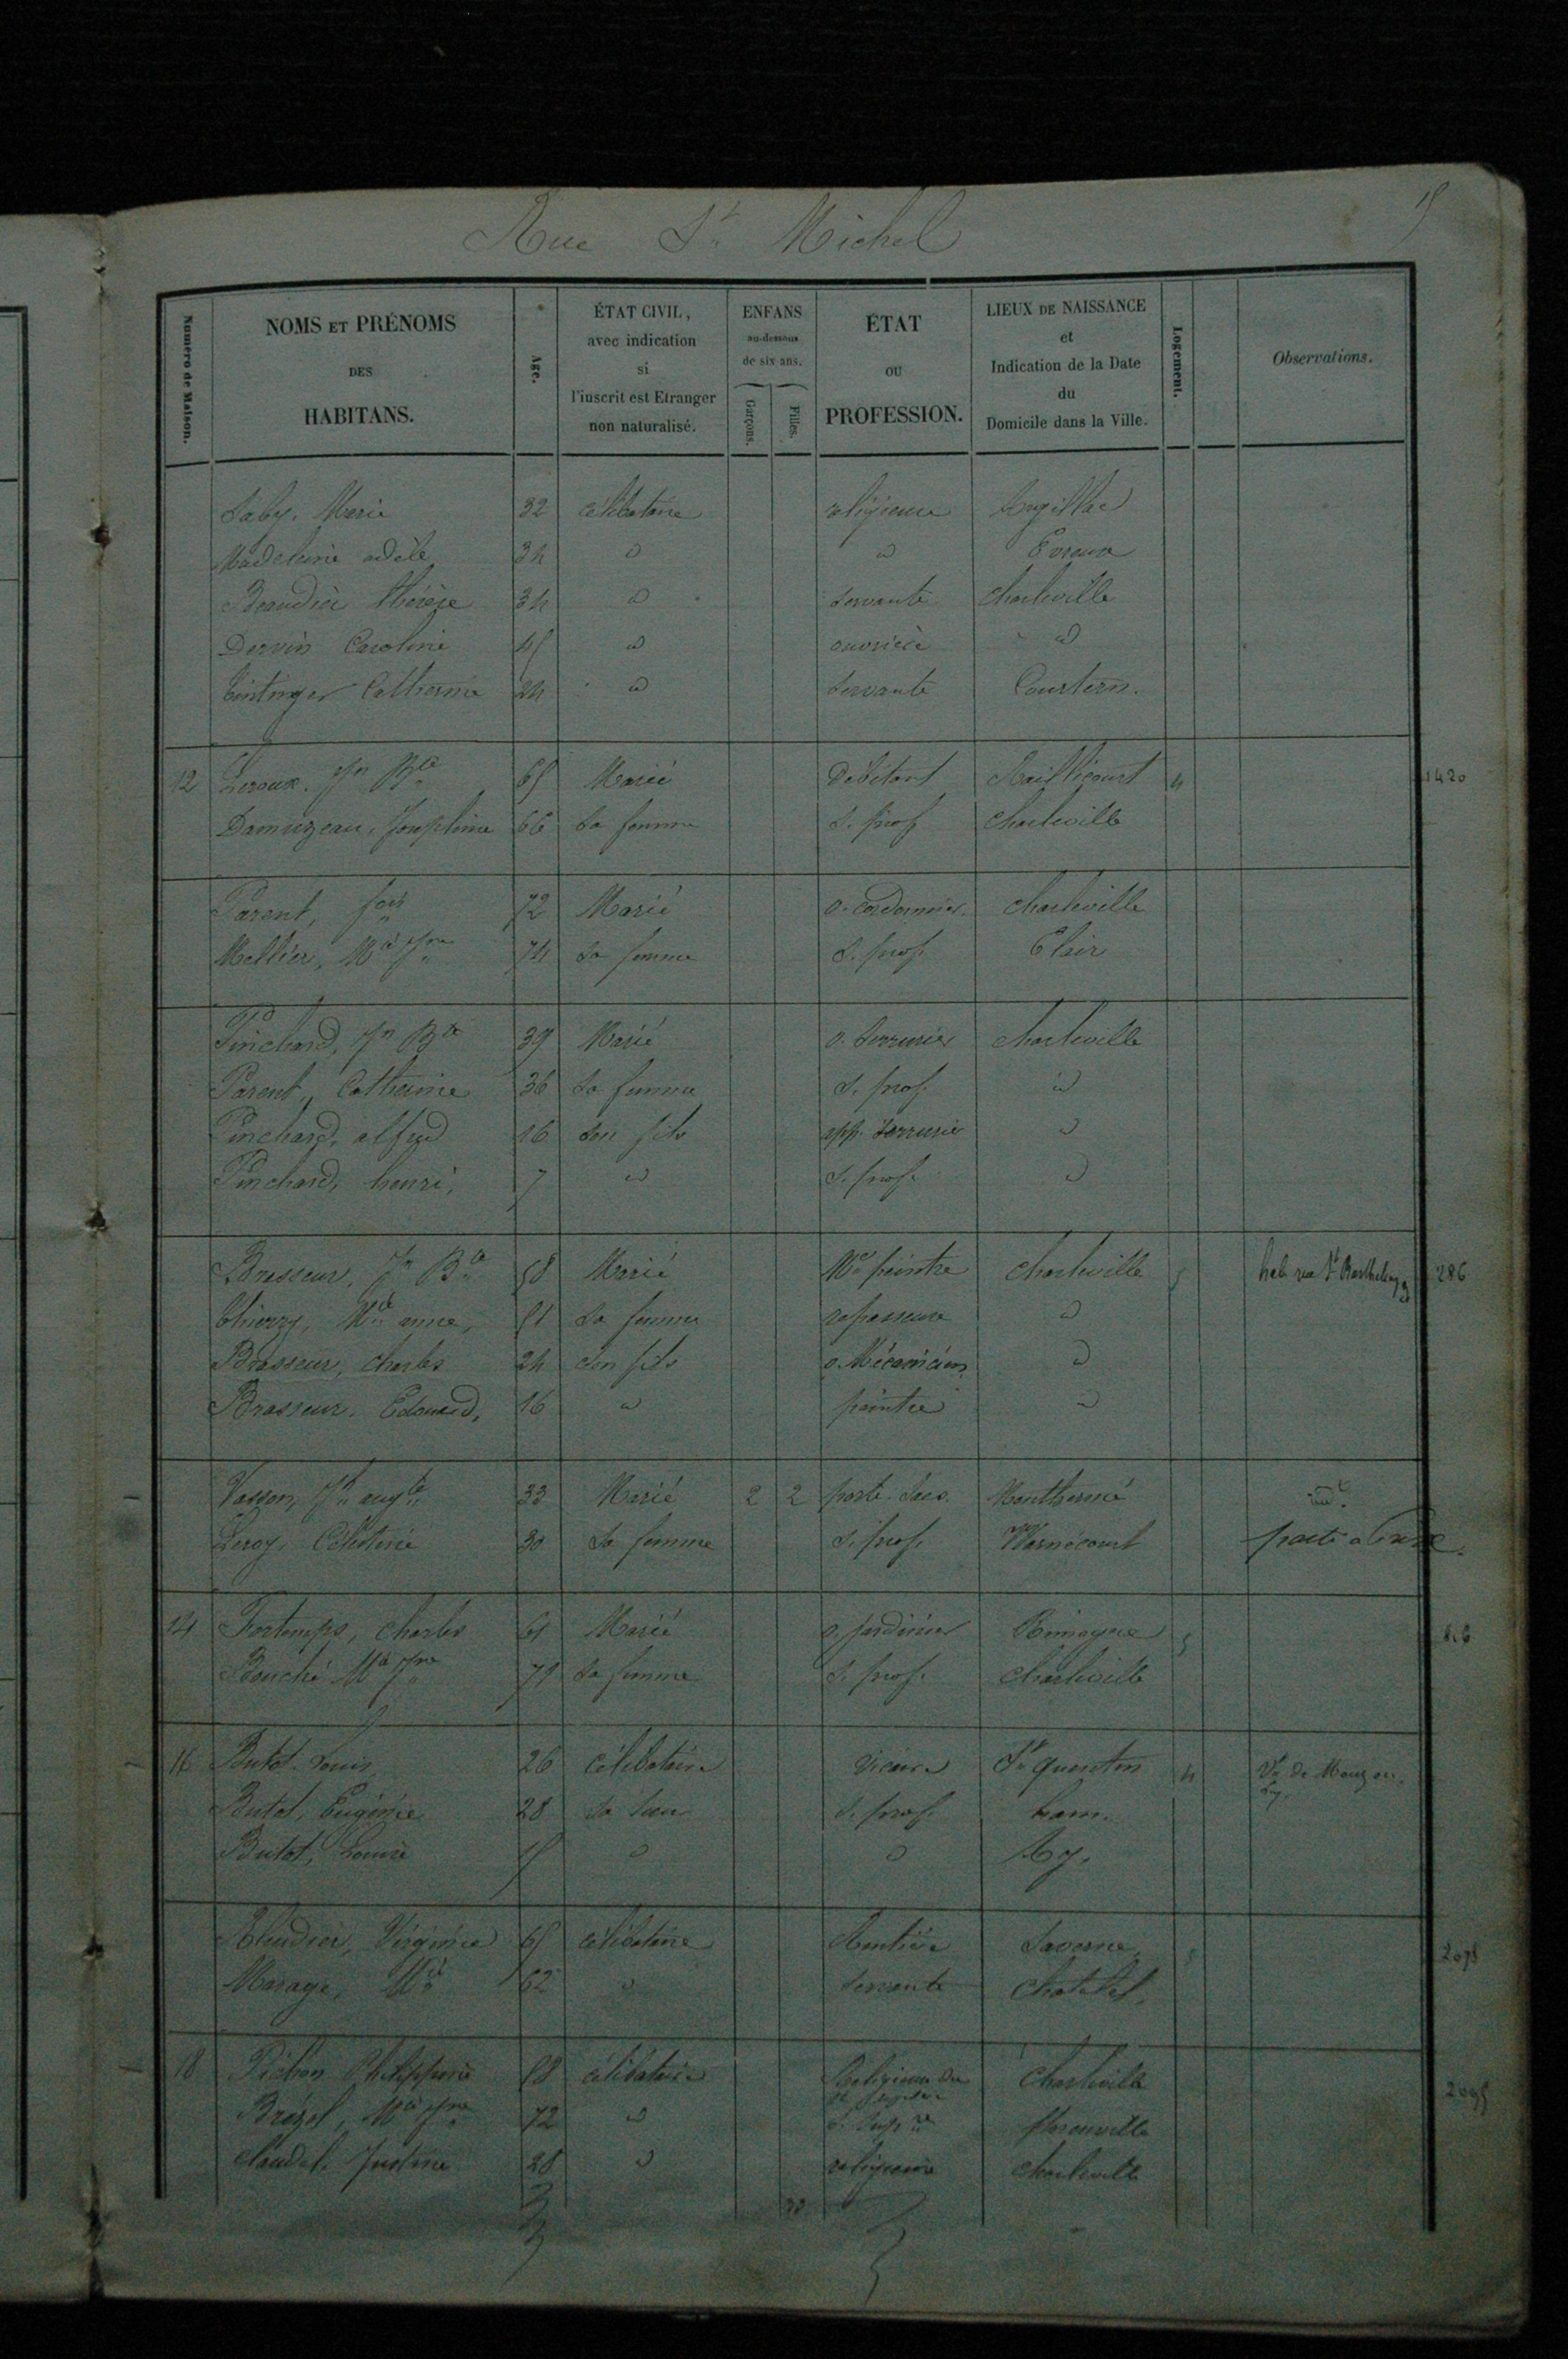 Rue St Michel
Numéro de Maison.
NOMS ET PRÉNOMS
DES
HABITANS.
Age.
ÉTAT CIVIL,
avec indication
si
l'inscrit est Etranger
non naturalisé.
ENFANS
au-dessous
de six ans.
Garçons.
Filles.
ÉTAT
OU
PROFESSION.
LIEUX DE NAISSANCE
et
Indication de la Date
du
Domicile dans la Ville.
Logement.
Observations.
Saby. Marie 32 célibataire religieuse
adèle 34 id id
Beaudier thérèse 34 id servante Charleville
Dervin Caroline 45 id ouvrière id
Catherine 24 id servante
12 Leroux. Jn Bte 65 Marié débitant Raillicourt 4 1420
Damuzeau, Joséphine 66 sa femme S. prof Charleville
Parent, fois 72 Marié o. cordonnier Charleville
Mellier, Mie Jne 74 sa femme S. prof. Elair
Pinchard, Jn Bte 39 Marié o. serrurier Charleville
Parent, Catherine 36 sa femme S. prof. id
Pinchard, alfred 16 son fils app. serrurier id
Pinchard, henri, 7 id S. prof. id
Brasseur, Jn Bte 58 Marié Me peintre Charleville 5 hab rue St Barthelemy 286
thierry, Mie anne, 51 sa femme repasseuse id
Brasseur, charles 24 son fils o. Mécanicien id
Brasseur. Edouard, 16 id peintre id
Vasson, Jn augte 33 Marié 2 2 porte-sacs. Monthermé
Leroy, Célestine 30 sa femme S. prof. Warnécourt
14 Fortemps, charles 61 Marié o. jardinier Rimogne 5
Bouché Mie Jne 71 sa femme S. prof. Charleville
16 Butot Louis 26 célibataire vicaire St quentin 4
Butot, Eugénie 28 sa soeur S. prof. ham.
Butot, Louise id id
Virginie 65 célibataire Rentière Saverne
Marage, Mie 62 id servante
18 Pichon Philippine 58 célibataire Charleville
Mie Jne 72 id
Claudel. Justine 28 id religieuse Charleville